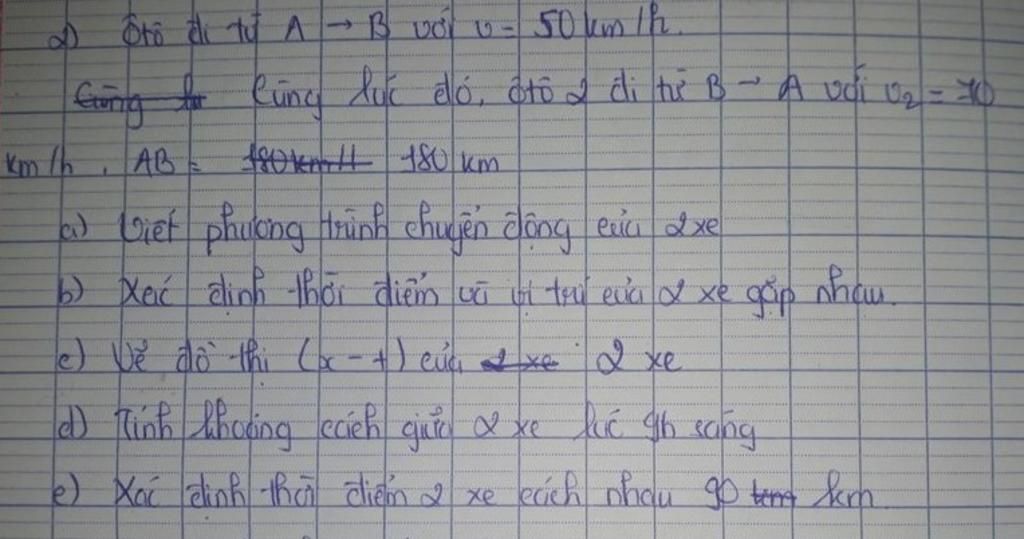 2) Ôtô đi từ A → B với v = 50 km/h.
Cùng lúc đó, ôtô 2 đi từ B → A với v₂ = 70
km/h, AB = 180 km
a) Viết phương trình chuyển động của 2 xe
b) Xác định thời điểm và vị trí của 2 xe gặp nhau.
c) Vẽ đồ thị (x - t) của 2 xe
d) Tính khoảng cách giữa 2 xe lúc 9h sáng
e) Xác định thời điểm 2 xe cách nhau 90 km